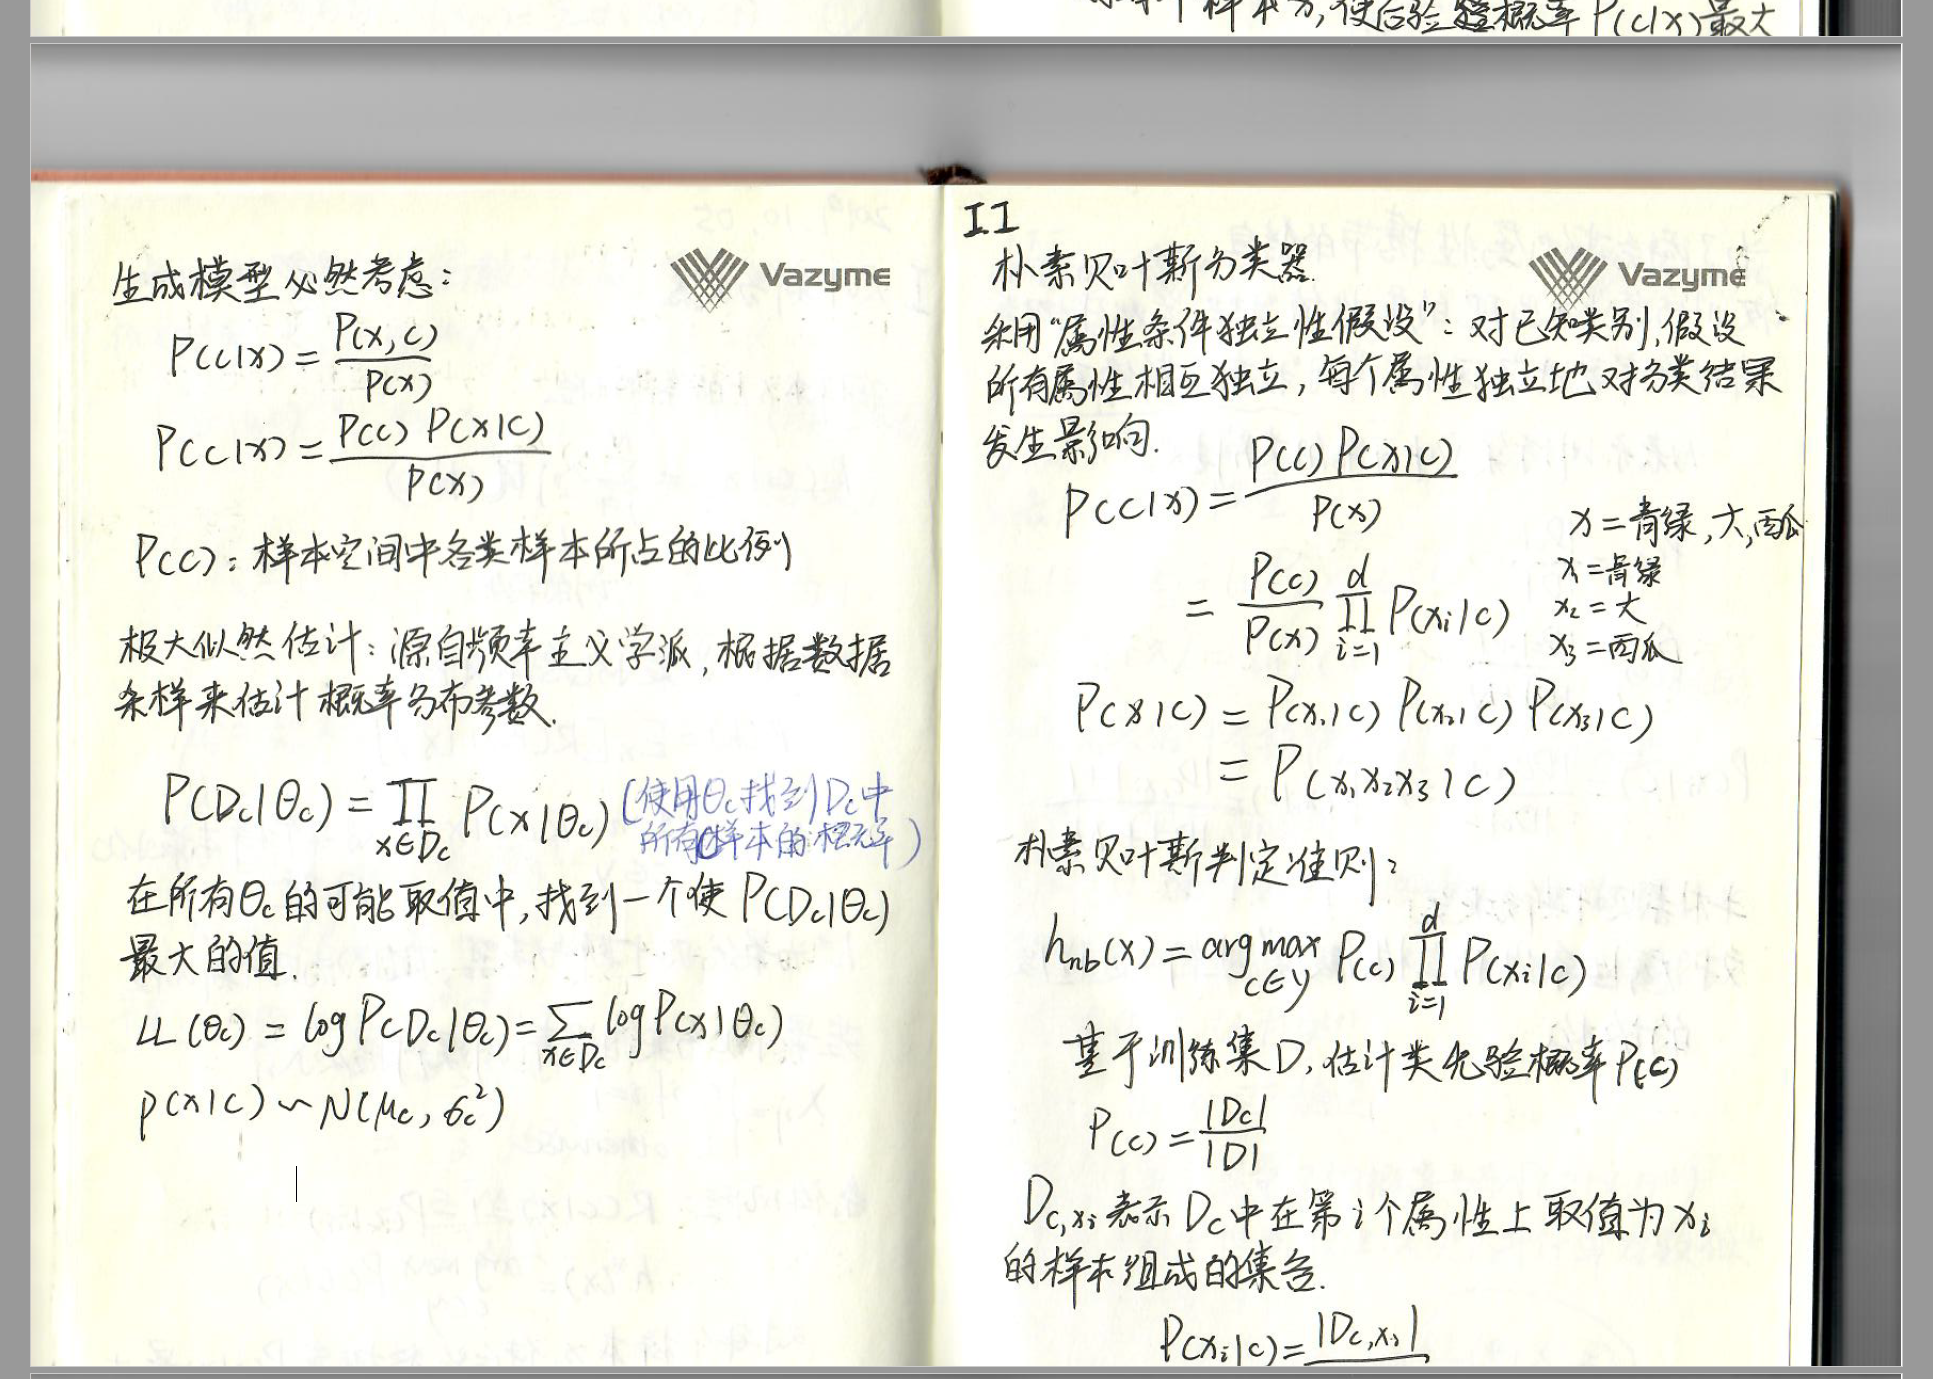 样本x,使后验概率P(c|x)最大
生成模型必然考虑:
Vazyme
P(c|x) = P(x,c) / P(x)
P(c|x) = P(c) P(x|c) / P(x)
P(c):样本空间中各类样本所占的比例
极大似然估计:源自频率主义学派,根据数据
采样来估计概率分布参数.
P(Dc|θc) = ∏ x∈Dc P(x|θc) (使用θc找到Dc中
所有样本的概率)
在所有θc的可能取值中,找到一个使P(Dc|θc)
最大的值.
LL(θc) = log P(Dc|θc) = ∑ x∈Dc log P(x|θc)
p(x|c) ~ N(μc, σc²)
II
朴素贝叶斯分类器.
Vazyme
采用“属性条件独立性假设”:对已知类别,假设
所有属性相互独立,每个属性独立地对分类结果
发生影响.
P(c|x) = P(c) P(x|c) / P(x)
x=青绿,大,西瓜
x₁=青绿
= P(c) / P(x) ∏ i=1 d P(xi|c)
x₂=大
x₃=西瓜
P(x|c) = P(x₁|c) P(x₂|c) P(x₃|c)
= P(x₁x₂x₃|c)
朴素贝叶斯判定准则:
hnb(x) = arg max c∈y P(c) ∏ i=1 d P(xi|c)
基于训练集D,估计类先验概率P(c)
P(c) = |Dc| / |D|
Dc,xi表示Dc中在第i个属性上取值为xi
的样本组成的集合.
P(xi|c) = |Dc,xi|